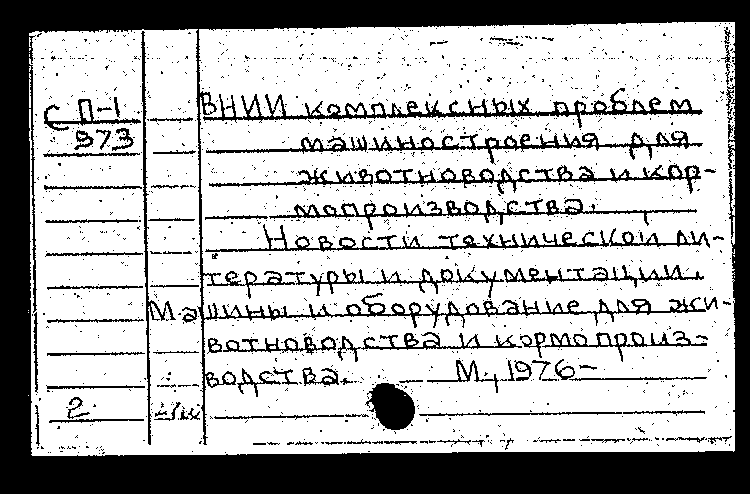 С П-1
973
ВНИИ комплексных проблем
машиностроения для
животноводства и кор-
мопроизводства.
Новости технической ли-
тературы и документации.
Машины и оборудование для жи-
вотноводства и кормопроиз-
водства. М., 1976-
2